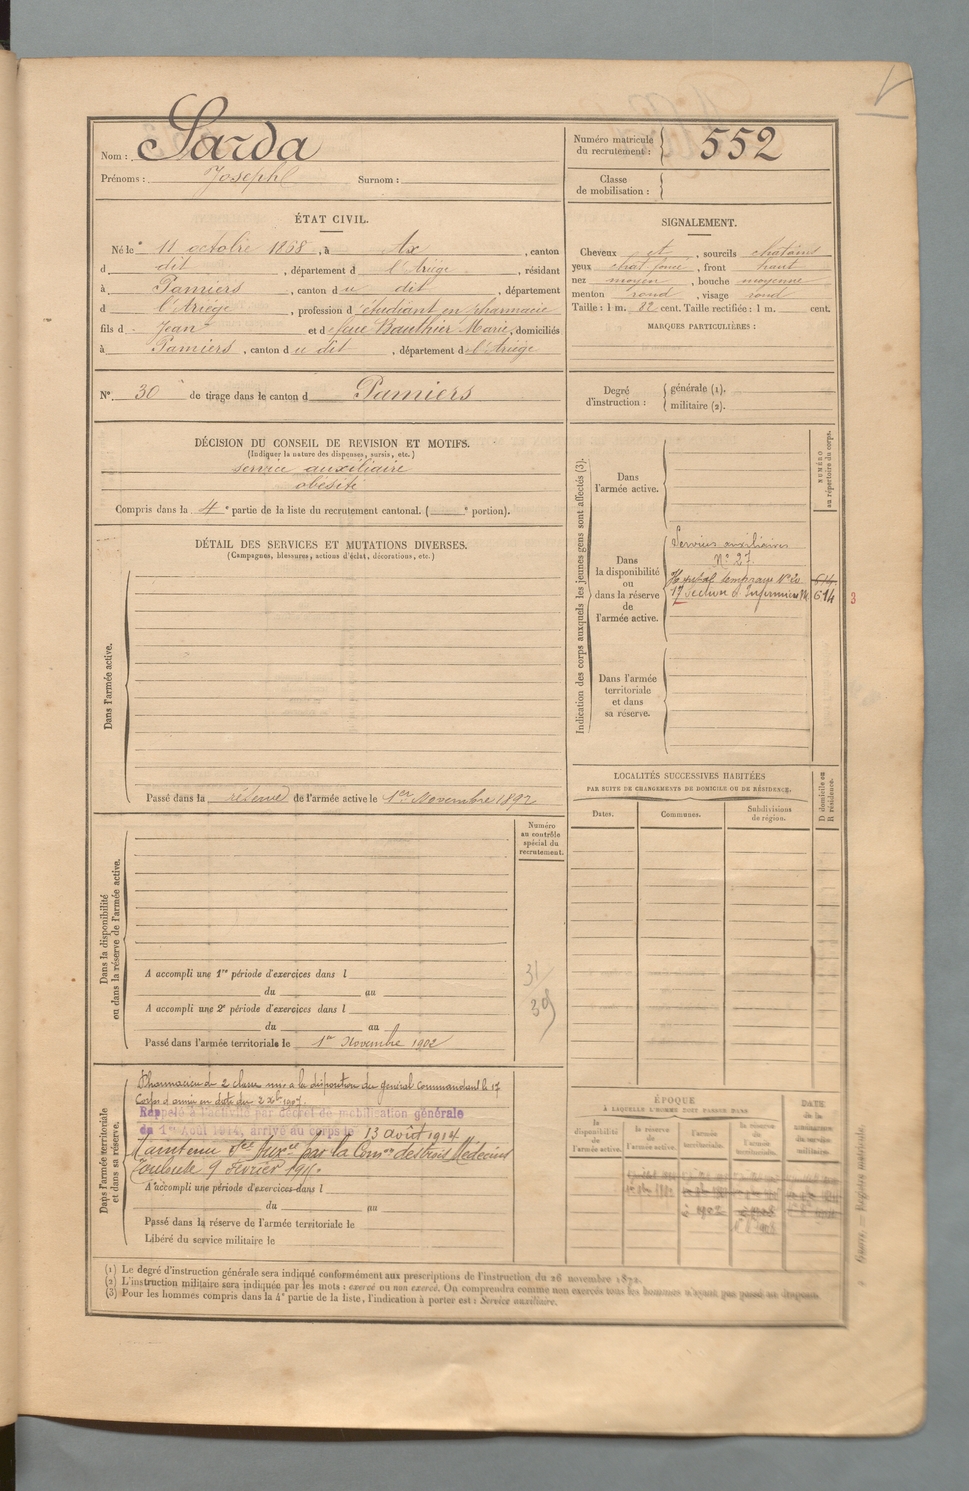 Nom : Sarda
Prénoms : Joseph Surnom :
Numéro matricule du recrutement : 552
Classe de mobilisation :
ÉTAT CIVIL.
Né le 11 octobre 1868, à Ax, canton
d dit, département d l'Ariège, résidant
à Pamiers, canton du dit, département
d l'Ariège, profession d'étudiant en pharmacie
fils d Jean et d feue Bauthier Marie, domiciliés
à Pamiers, canton du dit, département d l'Ariège
SIGNALEMENT.
Cheveux et, sourcils chatains
yeux chat, front haut
nez moyen, bouche moyenne
menton rond, visage rond
Taille : 1 m. 82 cent. Taille rectifiée : 1 m. cent.
MARQUES PARTICULIÈRES :
N° 30 de tirage dans le canton d Pamiers
Degré d'instruction : générale (1).
militaire (2).
DÉCISION DU CONSEIL DE REVISION ET MOTIFS.
(Indiquer la nature des dispenses, sursis, etc.)
service auxiliaire
obésité
Compris dans la 4e partie de la liste du recrutement cantonal. ( e portion).
DÉTAIL DES SERVICES ET MUTATIONS DIVERSES.
(Campagnes, blessures, actions d'éclat, décorations, etc.)
Dans l'armée active.
Passé dans la réserve de l'armée active le 1er Novembre 1892
Indication des corps auxquels les jeunes gens sont affectés (3).
NUMÉRO au répertoire du corps.
Dans l'armée active.
Dans la disponibilité ou dans la réserve de l'armée active.
Services auxiliaires
N° 27
Hopital temporaire N° 20
17 Section d'Infirmiers 614
614 3
Dans l'armée territoriale et dans sa réserve.
LOCALITÉS SUCCESSIVES HABITÉES
PAR SUITE DE CHANGEMENTS DE DOMICILE OU DE RÉSIDENCE.
Dates. Communes. Subdivisions de région. D domicile ou R résidence.
Dans la disponibilité ou dans la réserve de l'armée active.
Numéro au contrôle spécial du recrutement.
A accompli une 1re période d'exercices dans l
du au
A accompli une 2e période d'exercices dans l
du au
31
39
Passé dans l'armée territoriale le 1er Novembre 1902
Dans l'armée territoriale et dans sa réserve.
Pharmacien de 2 classe mis à la disposition du général Commandant le 17
Corps d'armée en date du 2 Xbre 1907.
Rappelé à l'activité par décret de mobilisation générale
du 1er Août 1914, arrivé au corps le 13 août 1914
Maintenu Sce Auxre par la Comon des trois Médecins
Toulouse 9 Février 1915.
A accompli une période d'exercices dans l
du au
Passé dans la réserve de l'armée territoriale le
Libéré du service militaire le
ÉPOQUE
À LAQUELLE L'HOMME DOIT PASSER DANS
la disponibilité de l'armée active. la réserve de l'armée active. l'armée territoriale. la réserve de l'armée territoriale.
DATE de la libération du service militaire.
(1) Le degré d'instruction générale sera indiqué conformément aux prescriptions de l'instruction du 26 novembre 1872.
(2) L'instruction militaire sera indiquée par les mots : exercé ou non exercé. On comprendra comme non exercés tous les hommes n'ayant pas passé au drapeau.
(3) Pour les hommes compris dans la 4e partie de la liste, l'indication à porter est : Service auxiliaire.